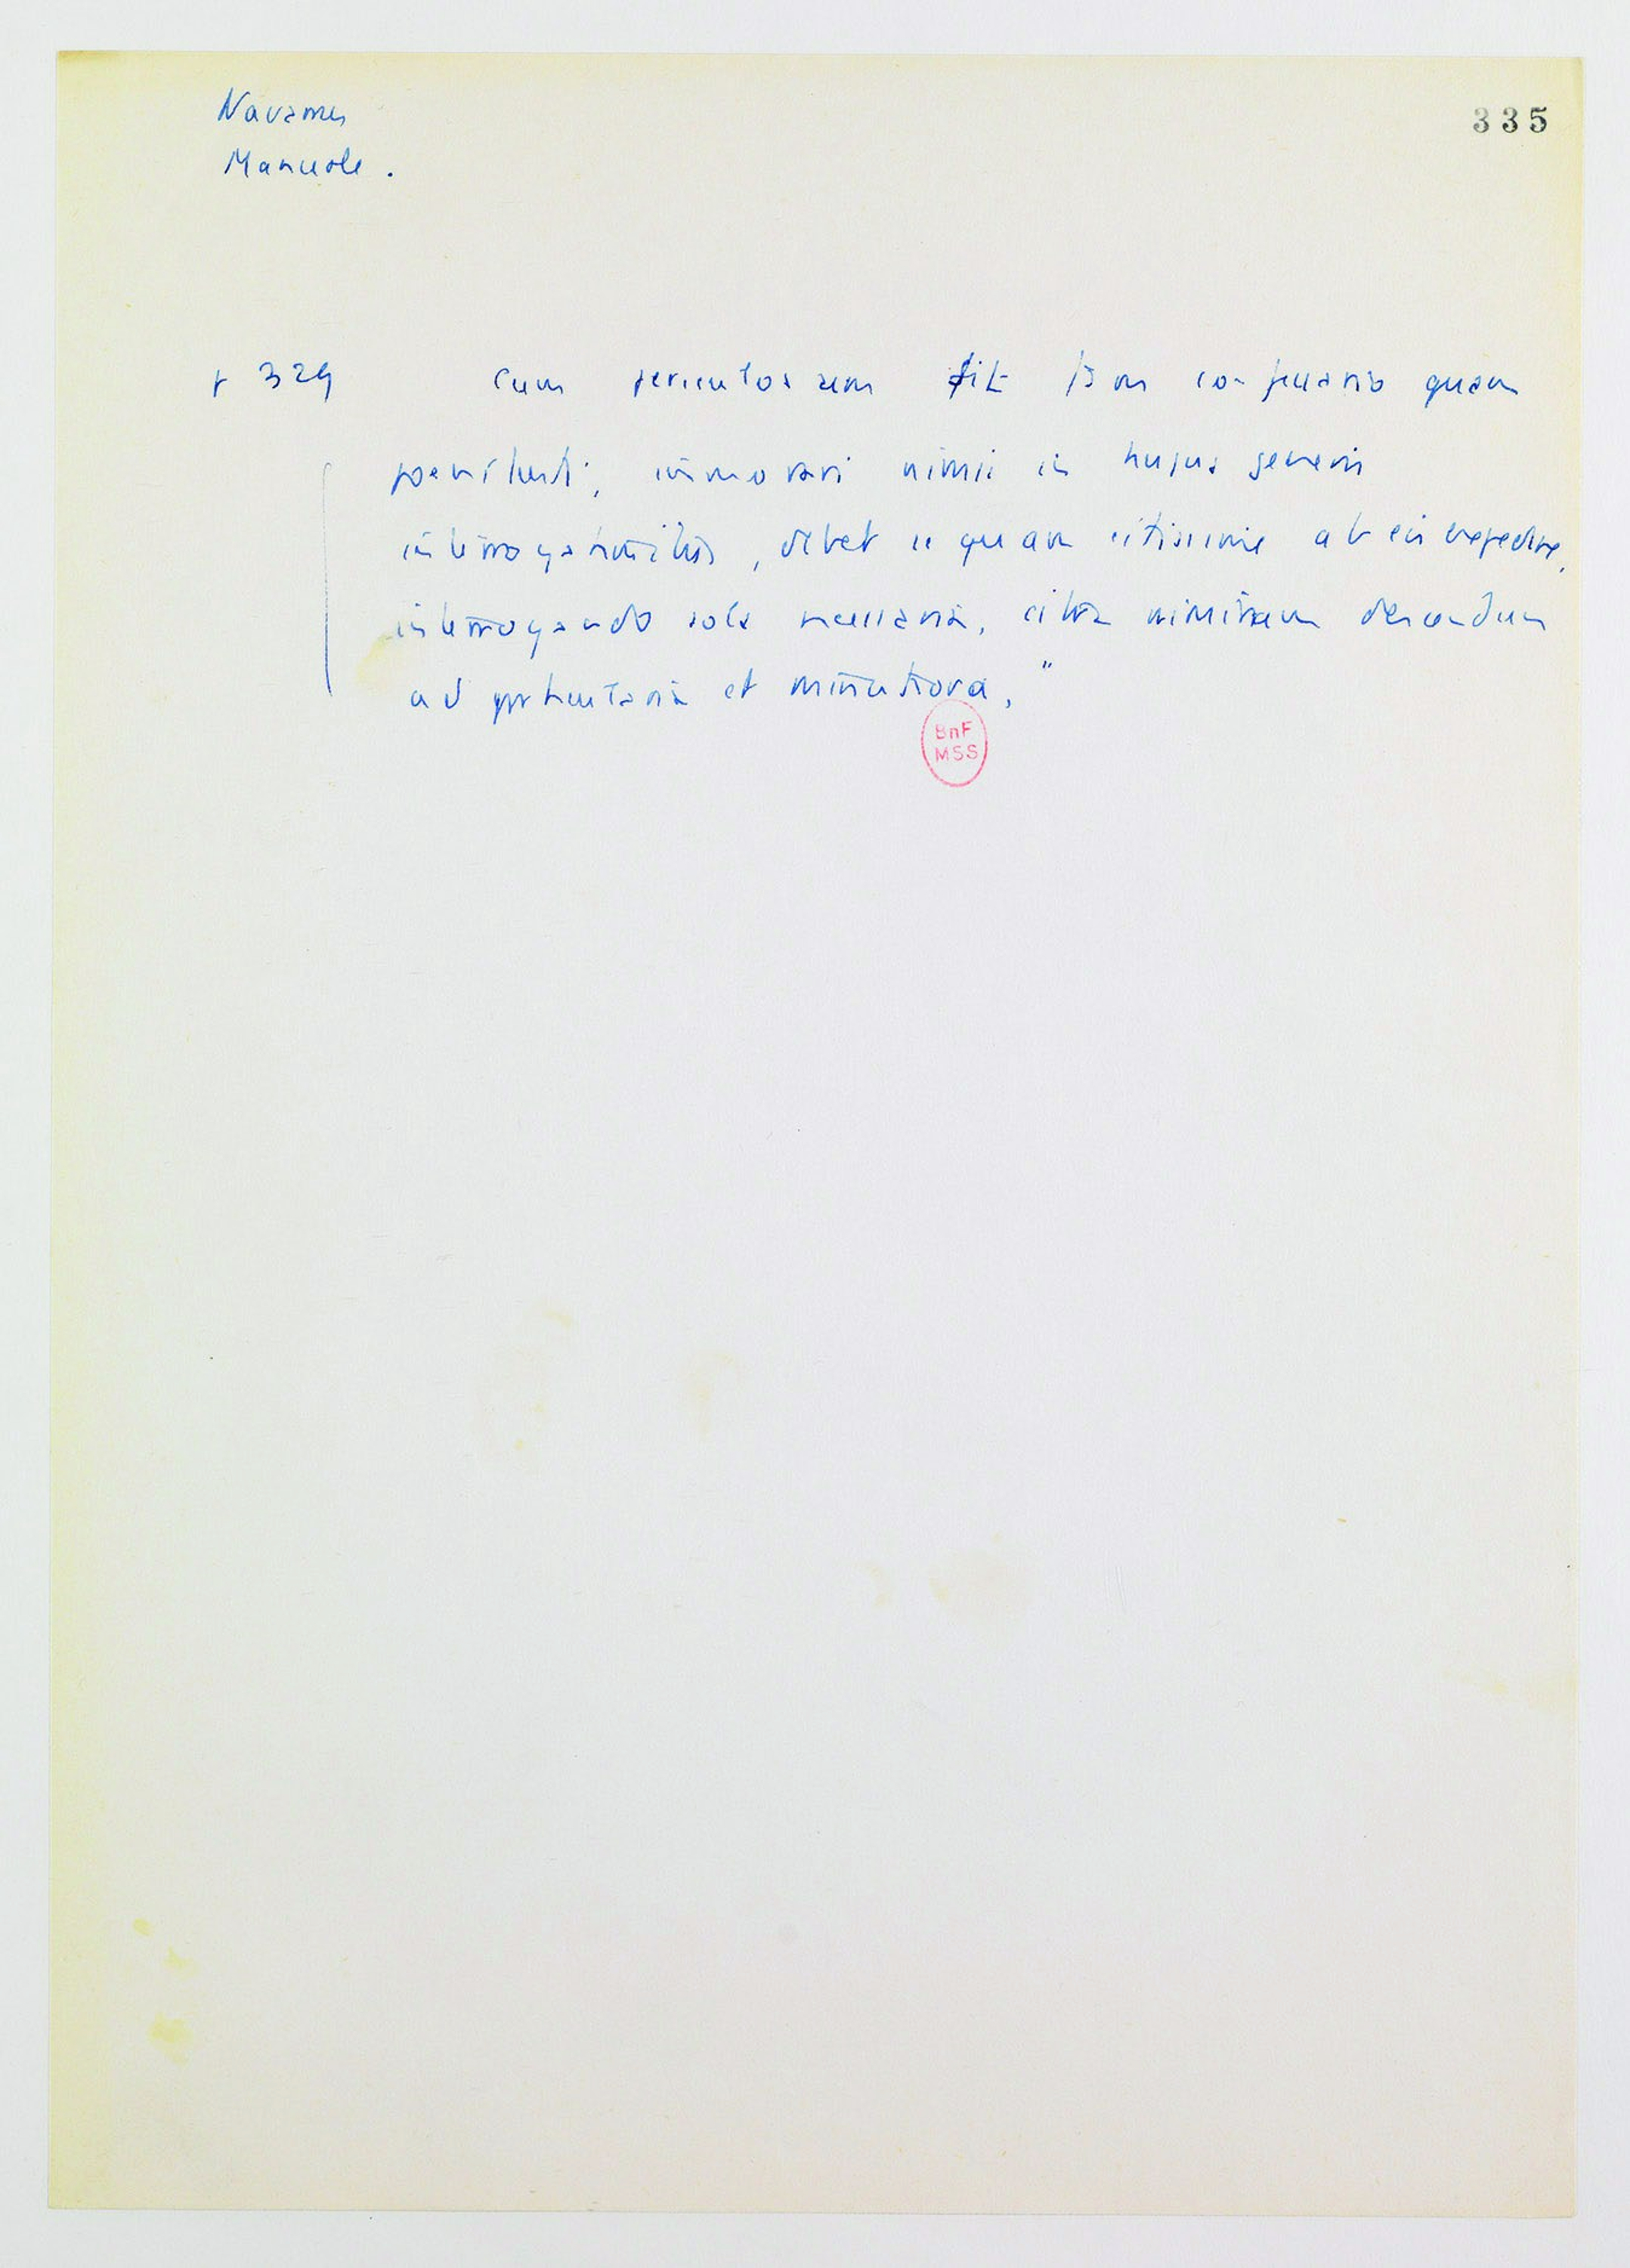 Navarrus
335
Manuale.
p 329 Cum periculosum sit tam confessario quam
poenitenti, immorari nimis in hujus generis
interrogationibus, debet se quam citissime ab eis expedire,
interrogando sola necessaria, citra nimirum descendum
ad particularia et minutiora."
BnF
MSS